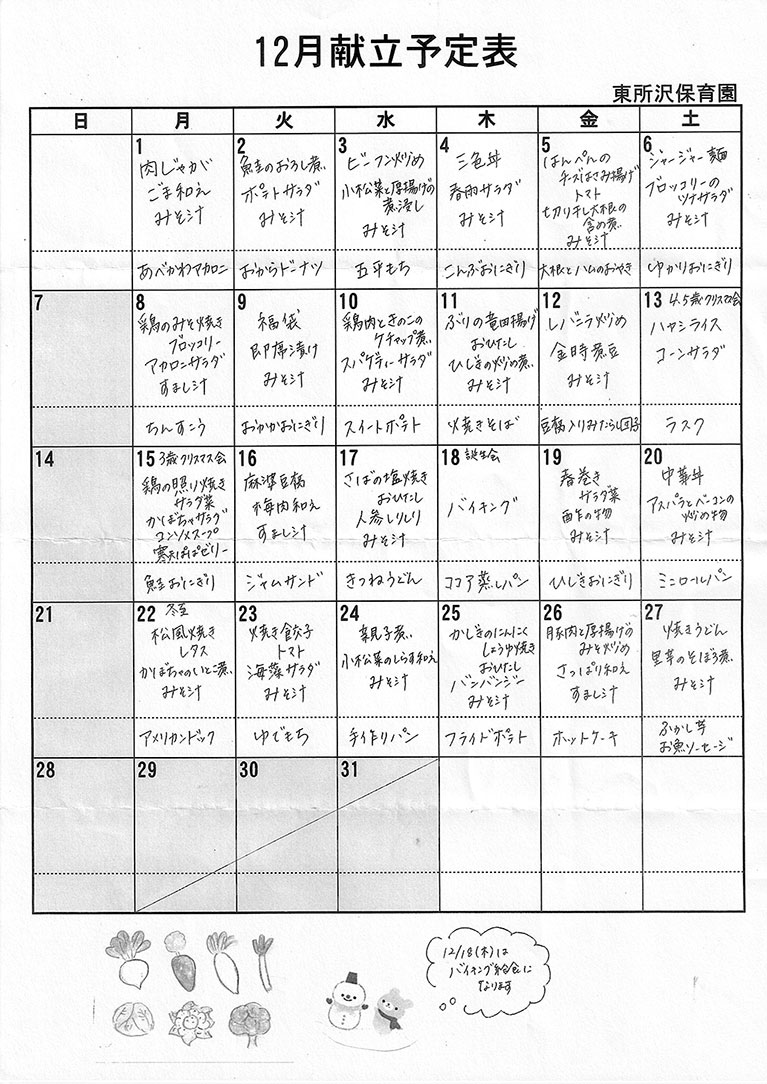 12月献立予定表
東所沢保育園
日 月 火 水 木 金 土
1
肉じゃが
ごま和え
みそ汁
あべかわマカロニ
2
鮭のおろし煮
ポテトサラダ
みそ汁
おからドーナツ
3
ビーフン炒め
小松菜と厚揚げの
煮浸し
みそ汁
五平もち
4
三色丼
春雨サラダ
みそ汁
こんぶおにぎり
5
はんぺんの
チーズはさみ揚げ
トマト
切り干し大根の
含め煮
みそ汁
大根とハムのおやき
6
ジャージャー麺
ブロッコリーの
ツナサラダ
みそ汁
ゆかりおにぎり
7
8
鶏のみそ焼き
ブロッコリー
マカロニサラダ
すまし汁
ちんすこう
9
福袋
即席漬け
みそ汁
おかかおにぎり
10
鶏肉ときのこの
ケチャップ煮
スパゲティーサラダ
みそ汁
スイートポテト
11
ぶりの竜田揚げ
おひたし
ひじきの炒め煮
みそ汁
焼きそば
12
レバニラ炒め
金時煮豆
みそ汁
豆腐入りみたらし団子
13 4.5歳クリスマス会
ハヤシライス
コーンサラダ
ラスク
14
15 3歳クリスマス会
鶏の照り焼き
サラダ菜
かぼちゃサラダ
コンソメスープ
鮭おにぎり
16
麻婆豆腐
梅肉和え
すまし汁
ジャムサンド
17
さばの塩焼き
おひたし
人参しりしり
みそ汁
きつねうどん
18 誕生会
バイキング
ココア蒸しパン
19
春巻き
サラダ菜
酢の物
みそ汁
ひじきおにぎり
20
中華丼
アスパラとベーコンの
炒め物
みそ汁
ミニロールパン
21
22 冬至
松風焼き
レタス
かぼちゃのいとこ煮
みそ汁
アメリカンドック
23
焼き餃子
トマト
海藻サラダ
みそ汁
ゆでもち
24
親子煮
小松菜のしらす和え
みそ汁
手作りパン
25
かじきのにんにく
しょうゆ焼き
おひたし
バンバンジー
みそ汁
フライドポテト
26
豚肉と厚揚げの
みそ炒め
さっぱり和え
すまし汁
ホットケーキ
27
焼きうどん
里芋のそぼろ煮
みそ汁
ふかし芋
お魚ソーセージ
28
29
30
31
12/18(木)は
バイキング給食に
なります